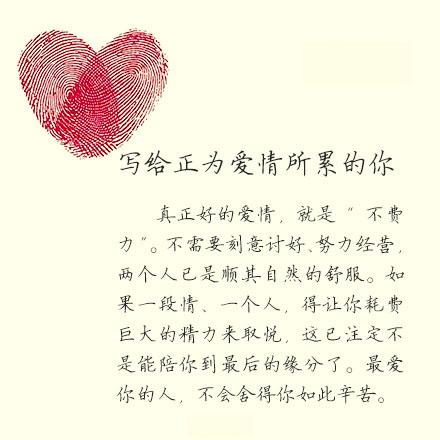 写给正为爱情所累的你
真正好的爱情，就是“不费
力”。不需要刻意讨好、努力经营，
两个人已是顺其自然的舒服。如
果一段情、一个人，得让你耗费
巨大的精力来取悦，这已注定不
是能陪你到最后的缘分了。最爱
你的人，不会舍得你如此辛苦。